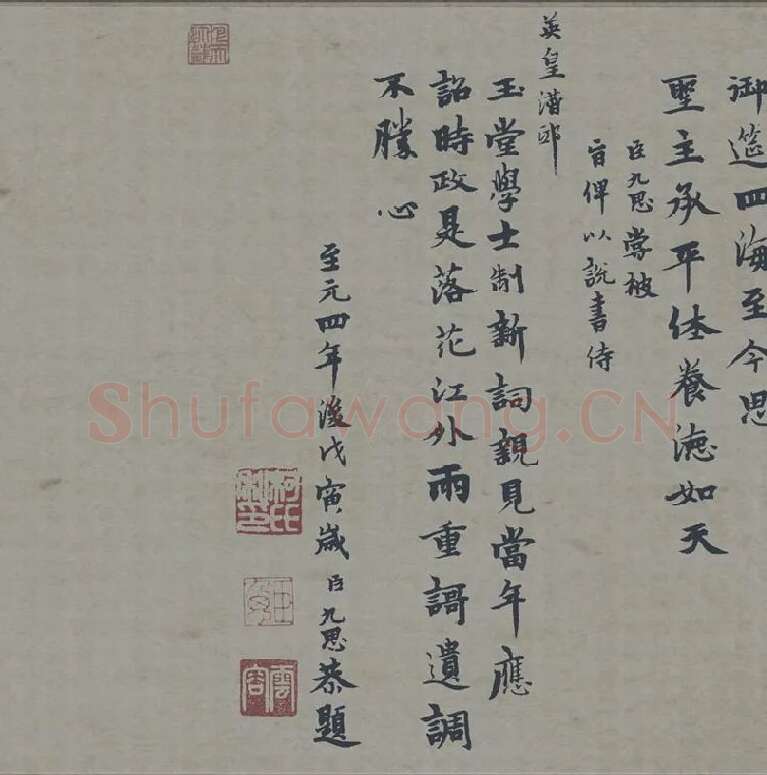 御筵四海至今思
聖主承平休養德如天
臣九思嘗被
旨俾以說書侍
英皇潛邸
玉堂學士制新詞親見當年應
詔時政是落花江外雨重謌遺調
不勝心
至元四年後戊寅歲臣九思恭題
Shufawang.CN